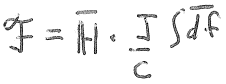 𝓕 = H̅ · J/c ∫ d̅f̅